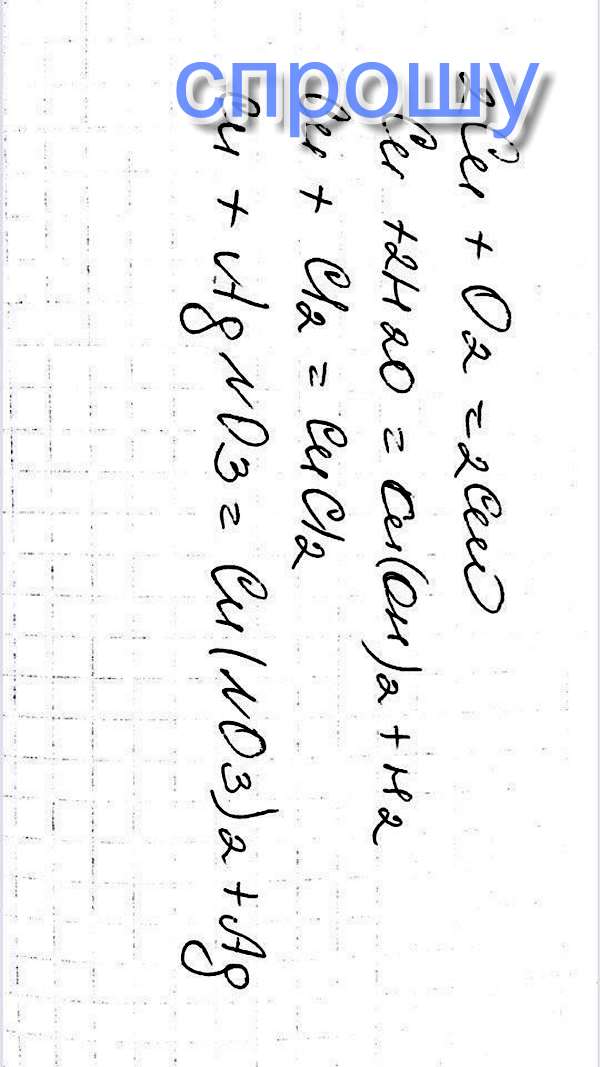 спрошу
2Cu + O2 = 2CuO
Cu + 2H2O = Cu(OH)2 + H2
Cu + Cl2 = CuCl2
Cu + AgNO3 = Cu(NO3)2 + Ag